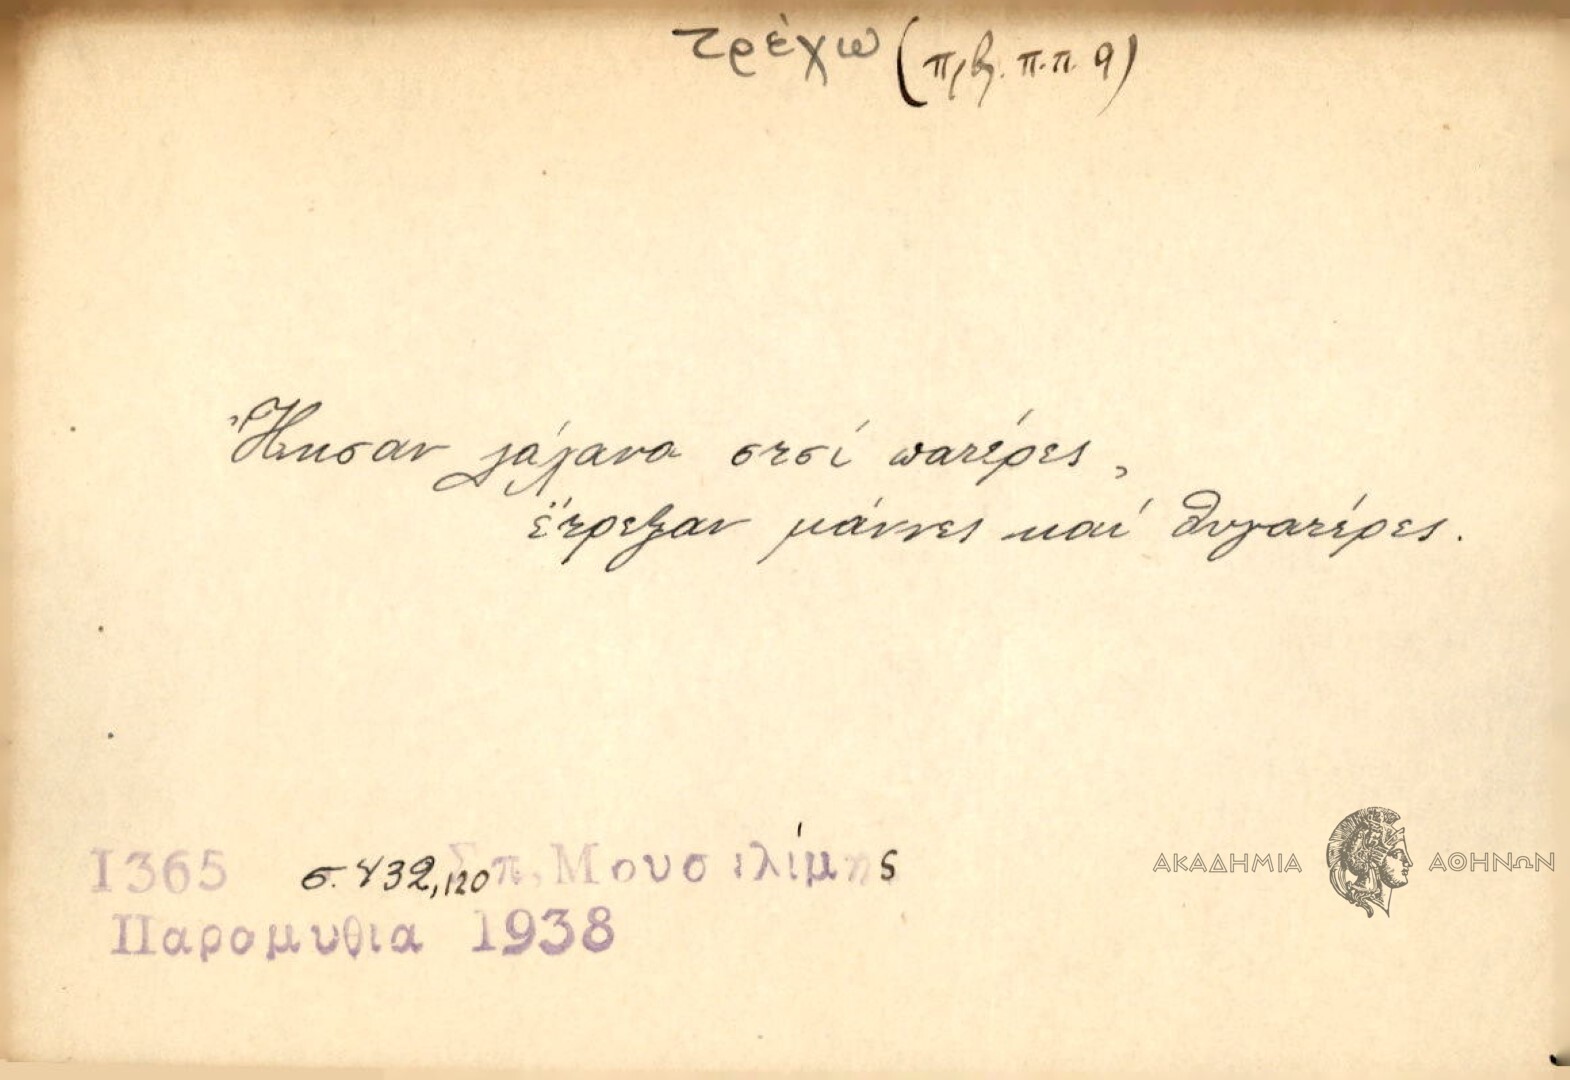 τρέχω (πρβ. π.π. 9)
λάχανα στσί πατέρες,
ἔτρεξαν μάννες καί θυγατέρες.
Ι365 σ. 432,120 Σπ. Μουσελίμης
Παραμυθια 1938
ΑΚΑΔΗΜΙΑ ΑΘΗΝΩΝ